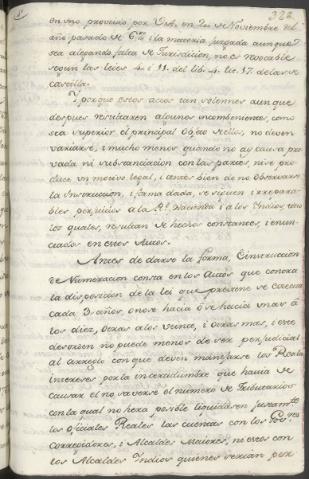 322
en uno proveido por V.A. en 20 de Noviembre del
año pasado de 6 la materia juzgada aunque
sea alegando falta de Jurisdicion, no es revocable
segun las leies 4. i 11. del lib. 4. tit. 17. de la de
Castilla.
I porque estos actos tan solemnes aunque
despues resultaren algunos incombenientes, como
sea superior el principal objeto de ellos, no deven
variarse, i mucho menos quando no ay causa pro
vada ni substanciacion con las partes, ni se pro
duce un motivo legal, i antes bien de no observarse
la Instruccion, i forma dada, se siguen irrepara
bles perjuicios a la Rl. Hacienda i a los Indios, todo
los quales, resultan de hechos constantes, i enun
ciados en estos Autos.
Antes de darse la forma, e instruccion
de Numeracion consta en los Autos que contra
la disposicion de la lei que previene se execute
cada 3. años, no se hacia o se hacia unas á
los diez, otras a los veinte, i otras mas, i este
desorden no puede menos de ser perjudicial
al arreglo con que deven manejarse los Reales
Intereses por la incertidumbre que havia de
causar el no saverse el numero de Tributarios
con la qual no hera posible liquidasen juntamte
los oficiales Reales las cuentas con los Govres
Corregidores, i Alcaldes Maiores, ni estos con
los Alcaldes Indios quienes verian por